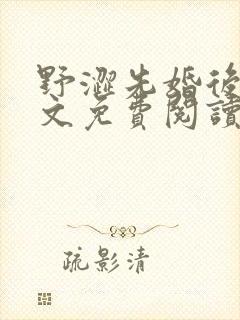 野澀先婚後
文免費閱讀
疏影清